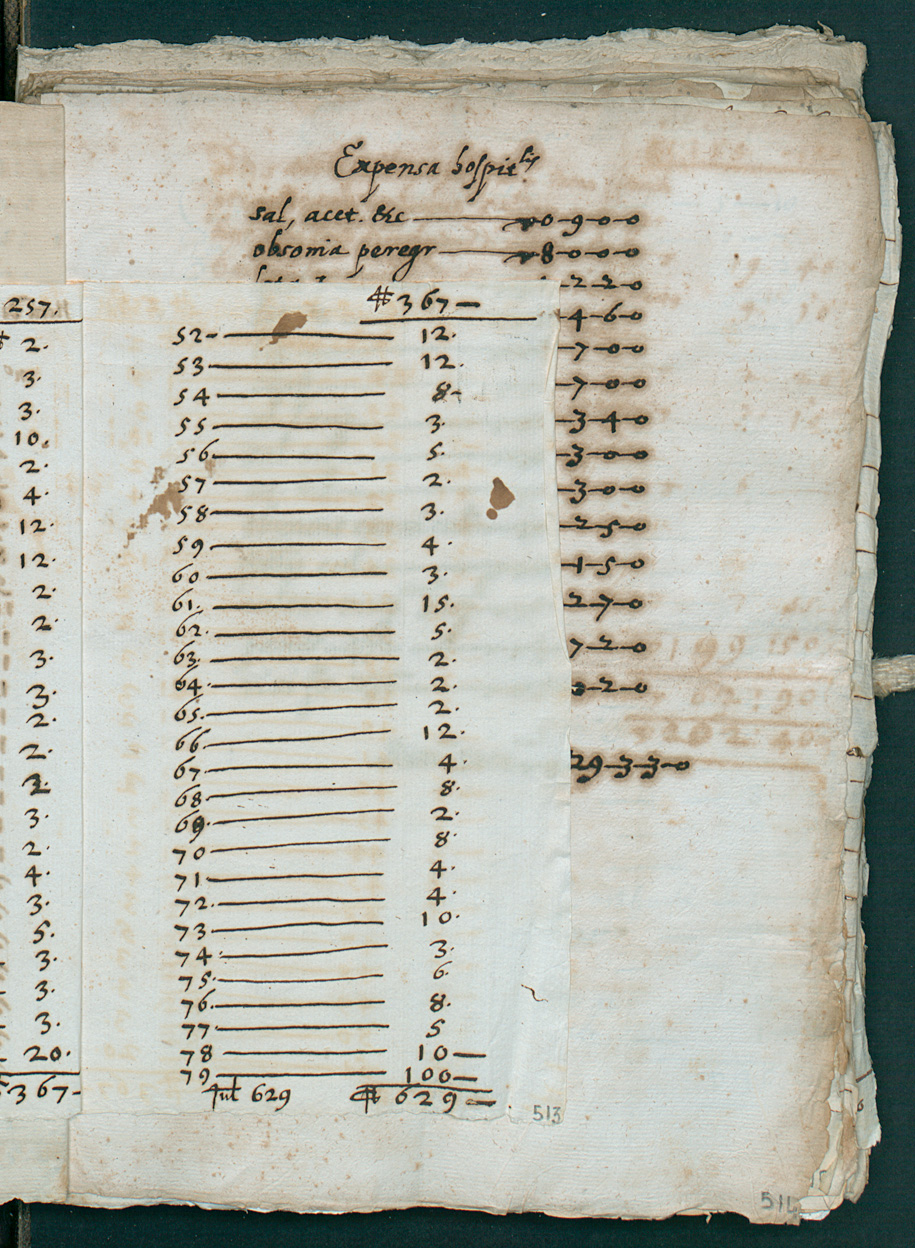 Expensa hospit
sal, acet. &c — 0-9-0-0
obsonia peregr — 8-0-0-0
-2-2-0
-4-6-0
-7-0-0
-7-0-0
-3-4-0
-3-0-0
-3-0-0
-2-5-0
-1-5-0
-2-7-0
7-2-0
-2-0
29-3-3-0
257.
2.
3.
3.
10.
2.
4.
12.
12.
2.
2.
3.
3.
2.
2.
3.
2.
4.
3.
5.
3.
3.
3.
20.
367-
367 —
52 — 12.
53 — 12.
54 — 8-
55 — 3.
56 — 5.
57 — 2.
58 — 3.
59 — 4.
60 — 3.
61. — 15.
62. — 5.
63. — 2.
64. — 2.
65. — 2.
66 — 12.
67 — 4.
68 — 8.
69 — 2.
70 — 8.
71 — 4.
72. — 4.
73 — 10.
74 — 3.
75. — 6.
76. — 8.
77 — 5
78 — 10 —
79 — 100 —
629 629 —
513
514